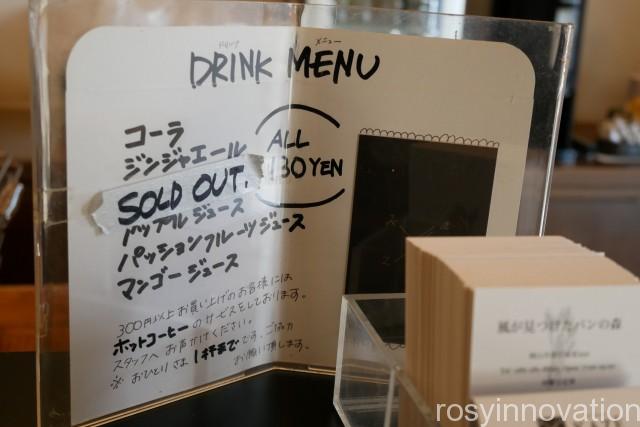 ドリンク メニュー
DRINK MENU
コーラ
ジンジャエール
SOLD OUT.
アップルジュース
パッションフルーツジュース
マンゴージュース
ALL
130YEN
300円以上お買い上げのお客様には
ホットコーヒーのサービスをしております。
スタッフへお声がけください。
※おひとりさま1杯までです。ご協力
お願い致します。
風が見つけたパンの森
rosyinnovation